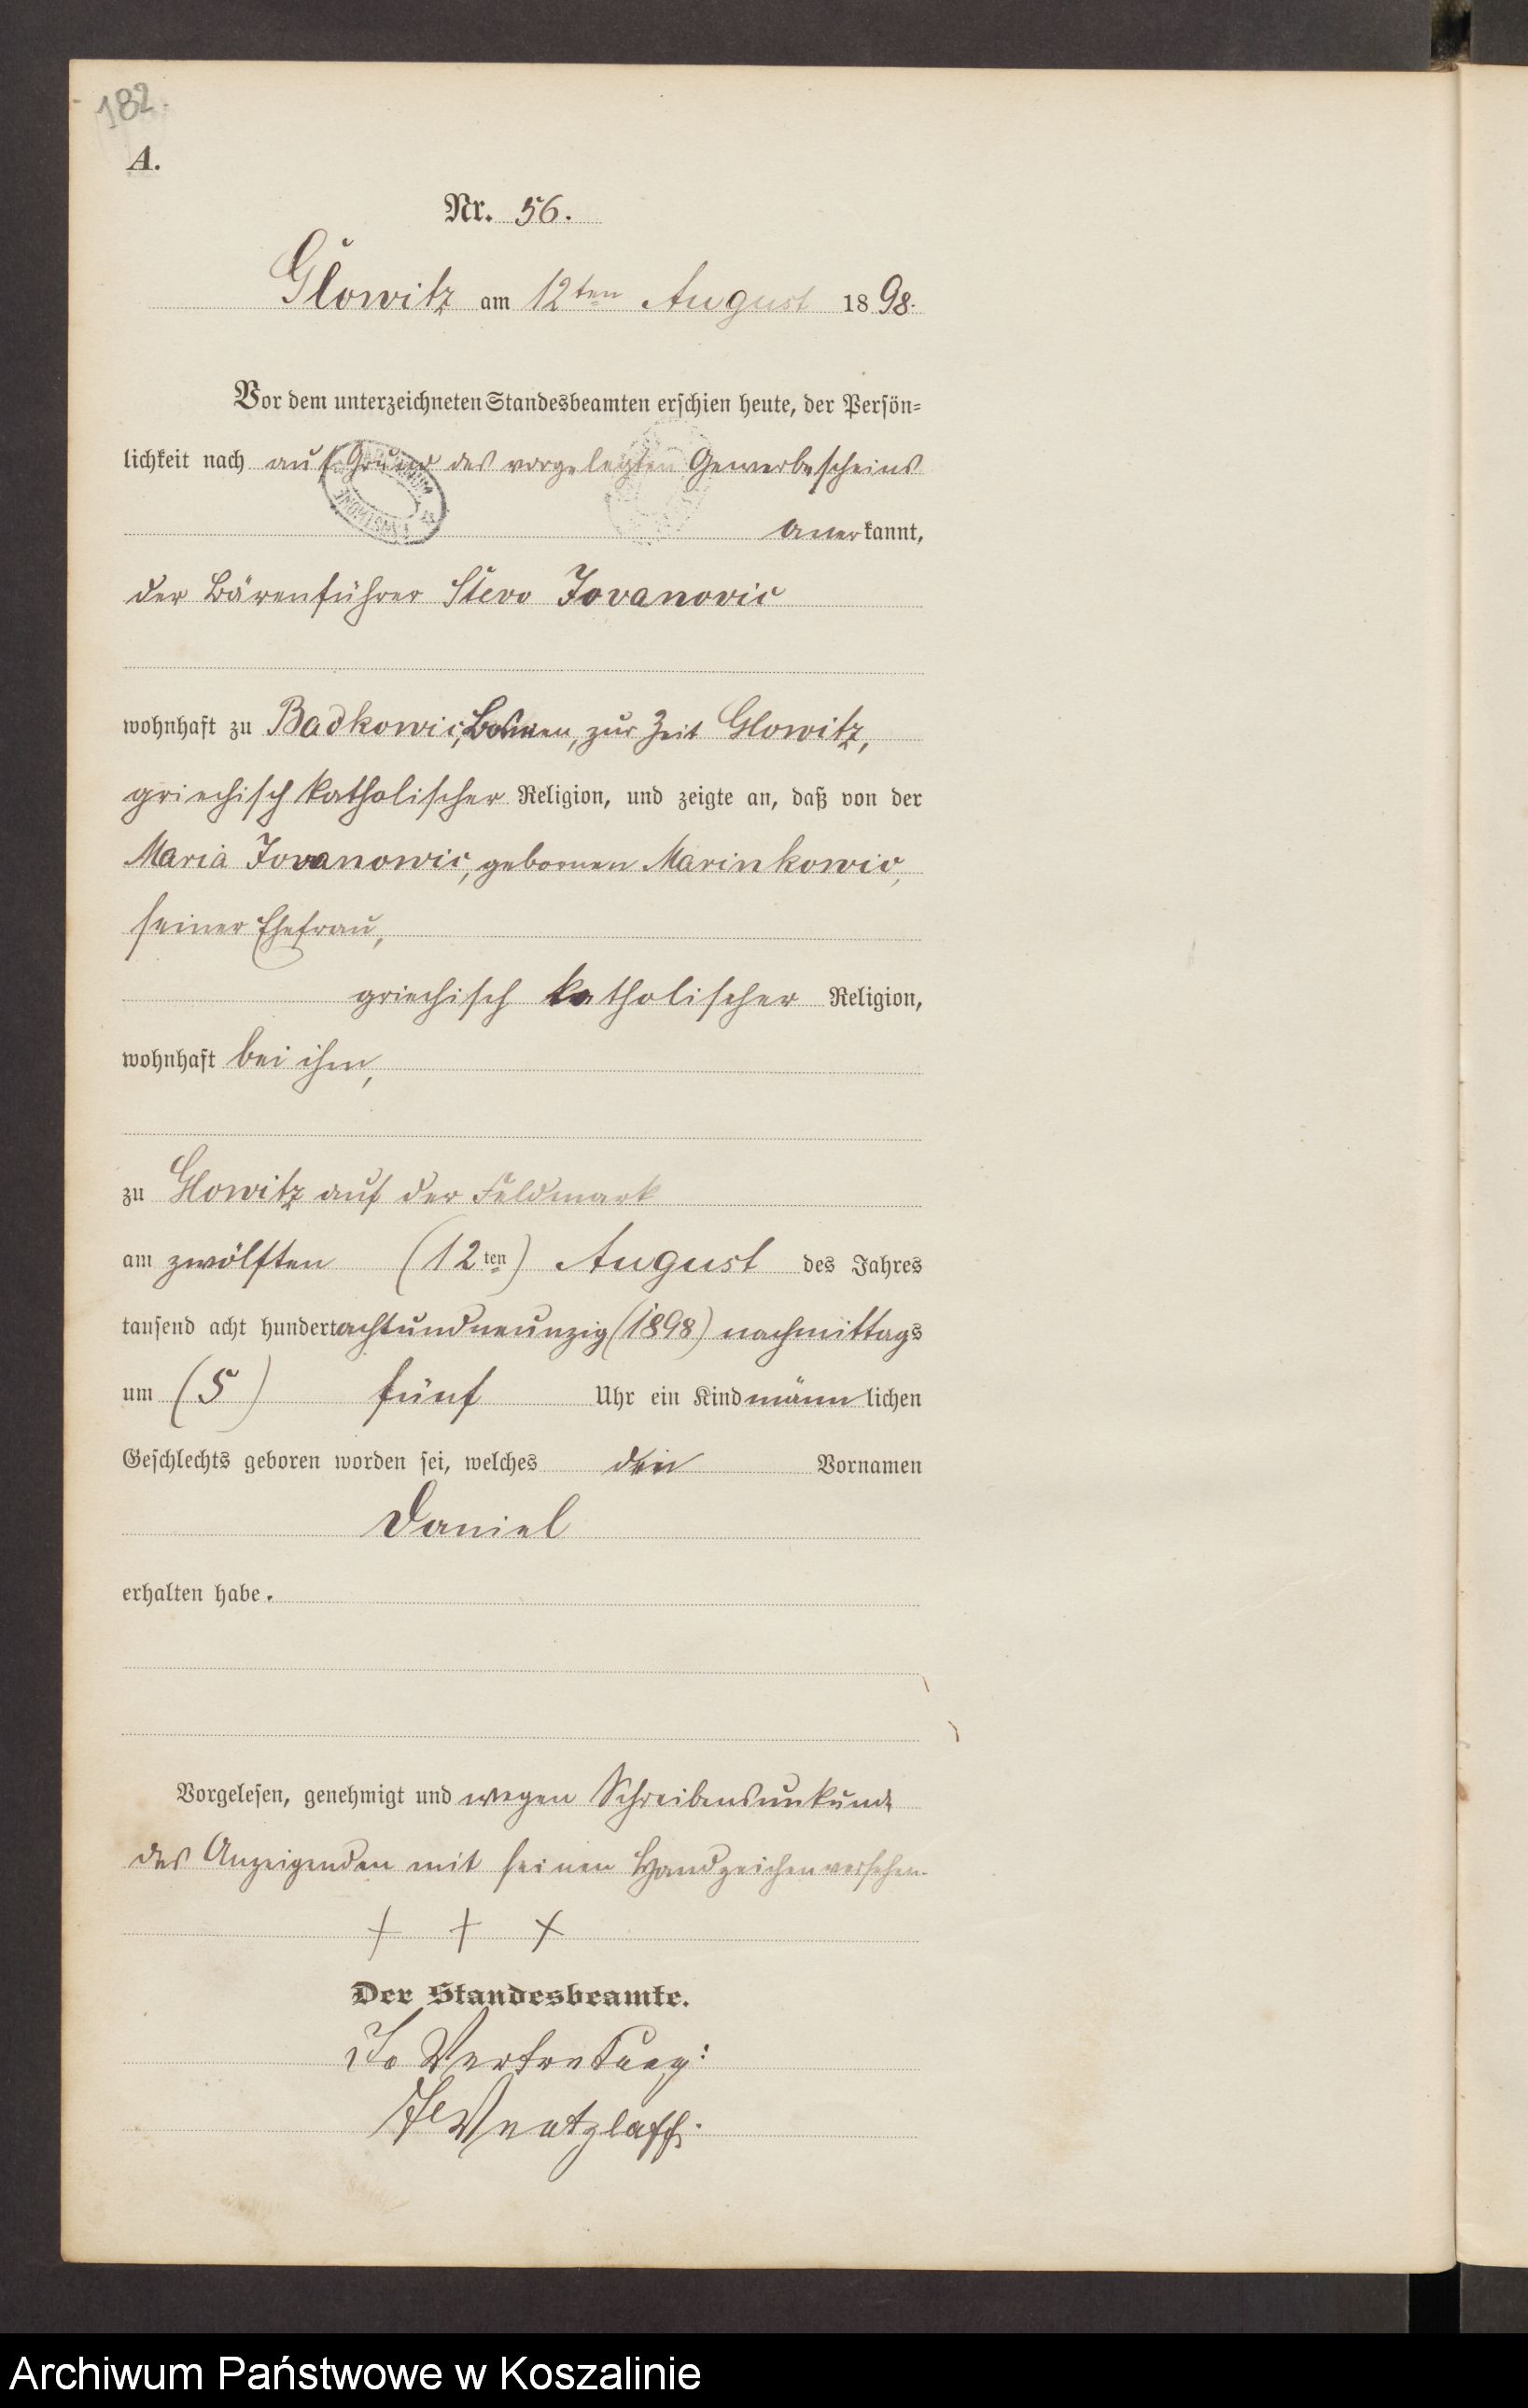 182.
A.
Nr. 56.
Glowitz am 12ten August 1898.
Vor dem unterzeichneten Standesbeamten erschien heute, der Persön=
lichkeit nach auf Grund des vorgelegten Gewerbescheins
anerkannt,
der Bärenführer Stevo Jovanovic
wohnhaft zu Badkowic, Bosnien, zur Zeit Glowitz,
griechisch katholischer Religion, und zeigte an, daß von der
Maria Jovanowic, gebornen Marinkowic,
seiner Ehefrau,
griechisch katholischer Religion,
wohnhaft bei ihm,
zu Glowitz auf der Feldmark
am zwölften (12ten) August des Jahres
tausend acht hundert achtundneunzig (1898) nachmittags
um (5) fünf Uhr ein Kind männlichen
Geschlechts geboren worden sei, welches den Vornamen
Daniel
erhalten habe.
Vorgelesen, genehmigt und wegen Schreibensunkunde
des Anzeigenden mit seinen Handzeichen versehen.
+ + +
Der Standesbeamte.
In Vertretung:
Wentzlaff.
Archiwum Państwowe w Koszalinie